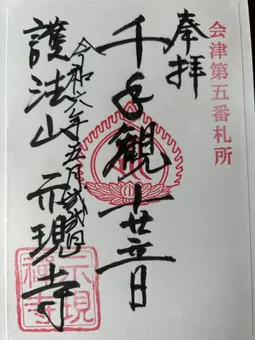 会津第五番札所
奉拝
千手観世音
令和六年五月日
護法山示現寺
示現
禅寺